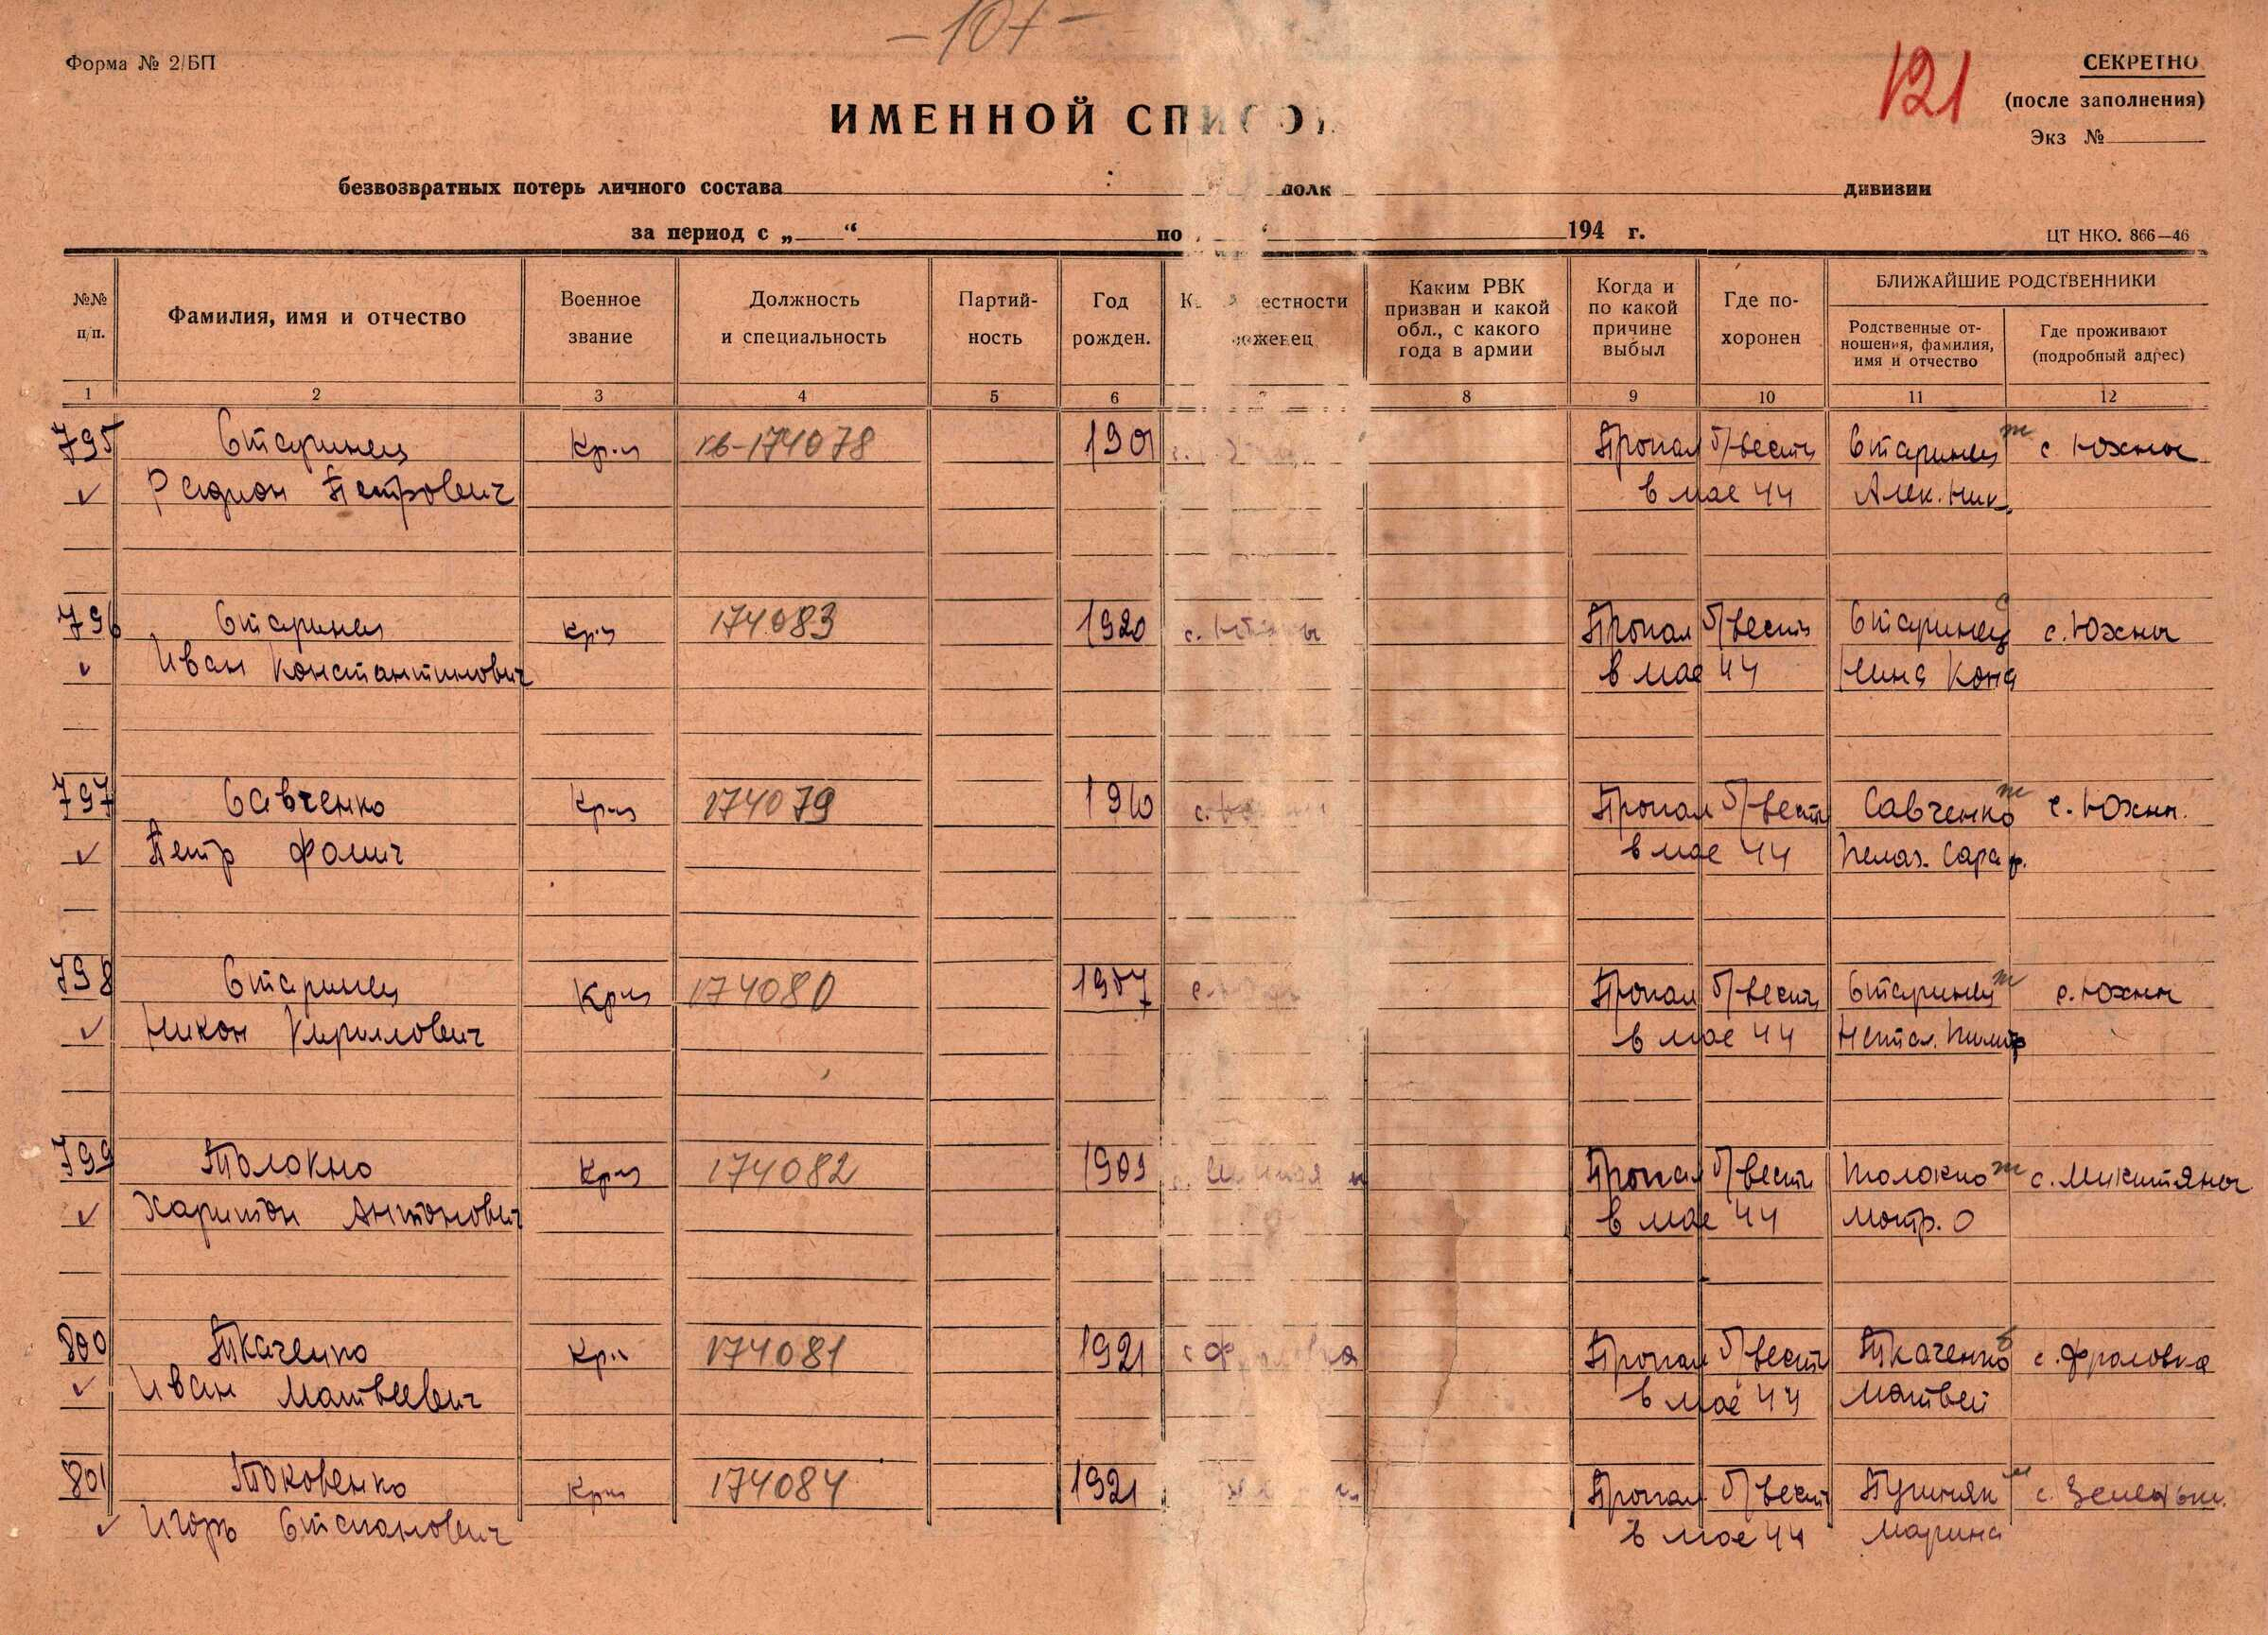 -107-
Форма № 2/БП
121
СЕКРЕТНО
(после заполнения)
Экз №
ИМЕННОЙ СПИСО
безвозвратных потерь личного состава полк дивизии
за период с „ “ по 194 г.
ЦТ НКО. 866—46
№№ п/п.
Фамилия, имя и отчество
Военное звание
Должность и специальность
Партий-ность
Год рожден.
естности
Каким РВК призван и какой обл., с какого года в армии
Когда и по какой причине выбыл
Где по-хоронен
БЛИЖАЙШИЕ РОДСТВЕННИКИ
Родственные от-ношения, фамилия, имя и отчество
Где проживают (подробный адрес)
1 2 3 4 5 6 7 8 9 10 11 12
795 Старинец Кр-ц 174078 1901 Пропал б/вести Старинец ж с. Южны
Радион Петрович в мае 44 Алек. Ник.
796 Старинец Кр-ц 174083 1920 Пропал б/вести Старинец с. Южны
Иван Константинович в мае 44 Нина Конд
797 Савченко Кр-ц 174079 1910 Пропал б/вести Савченко ж с. Южн.
Петр Фомич в мае 44 Пелаг. Сараф.
798 Старинец Кр-ц 174080 1907 Пропал б/вести Старинец ж с. Южны
Никон Кириллович в мае 44 Натал.
799 Толокно Кр-ц 174082 1909 Пропал б/вести Толокно ж с. Микитяны
Харитон Антонович в мае 44 Мотр. О
800 Ткаченко Кр-ц 174081 1921 Пропал б/вести Ткаченко с. Фроловка
Иван Матвеевич в мае 44 Матвей
801 Токовенко Кр-ц 174084 1921 Пропал б/вести м с.
Игорь Степанович в мае 44 Марина